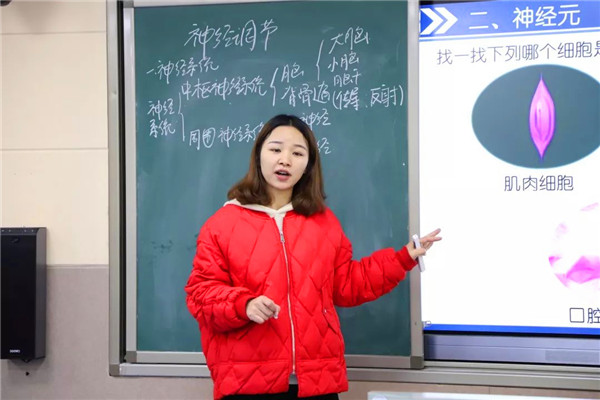 神经调节
一.神经系统
神经系统
中枢神经系统
脑
大脑
小脑
脑干
脊骨遀(传导、反射)
周围神经系
神经
经
二、神经元
找一找下列哪个细胞是
肌肉细胞
口腔